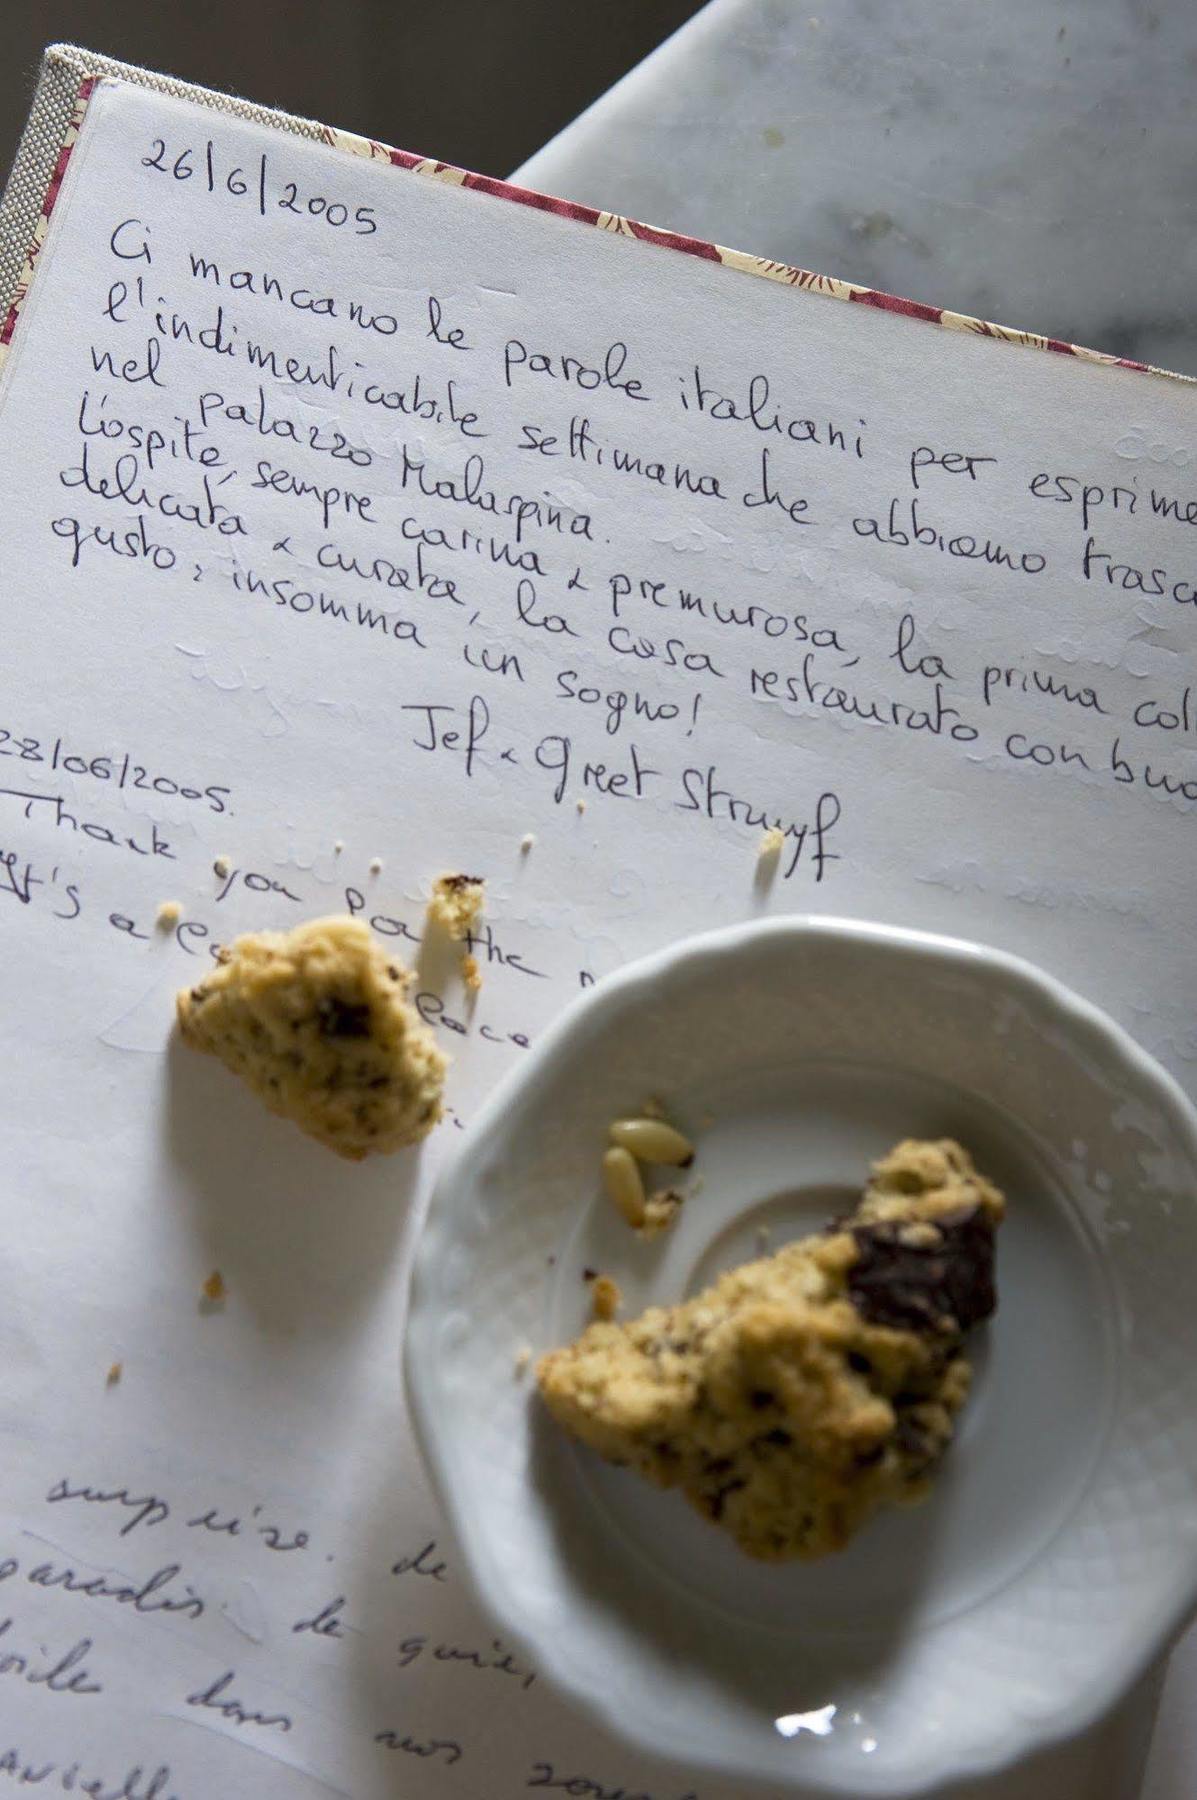 26/6/2005
Ci mancano le parole italiani per esprime
l'indimenticabile settimana che abbiamo trasc
nel palazzo Malaspina.
L'ospite, sempre carina & premurosa, la prima col
delicata & curata, la casa restaurato con buo
gusto, insomma un sogno!
Jef & Greet Struyf
28/06/2005.
Thank you for the
It's a peace
surprise. de
paradis. de
dans nos